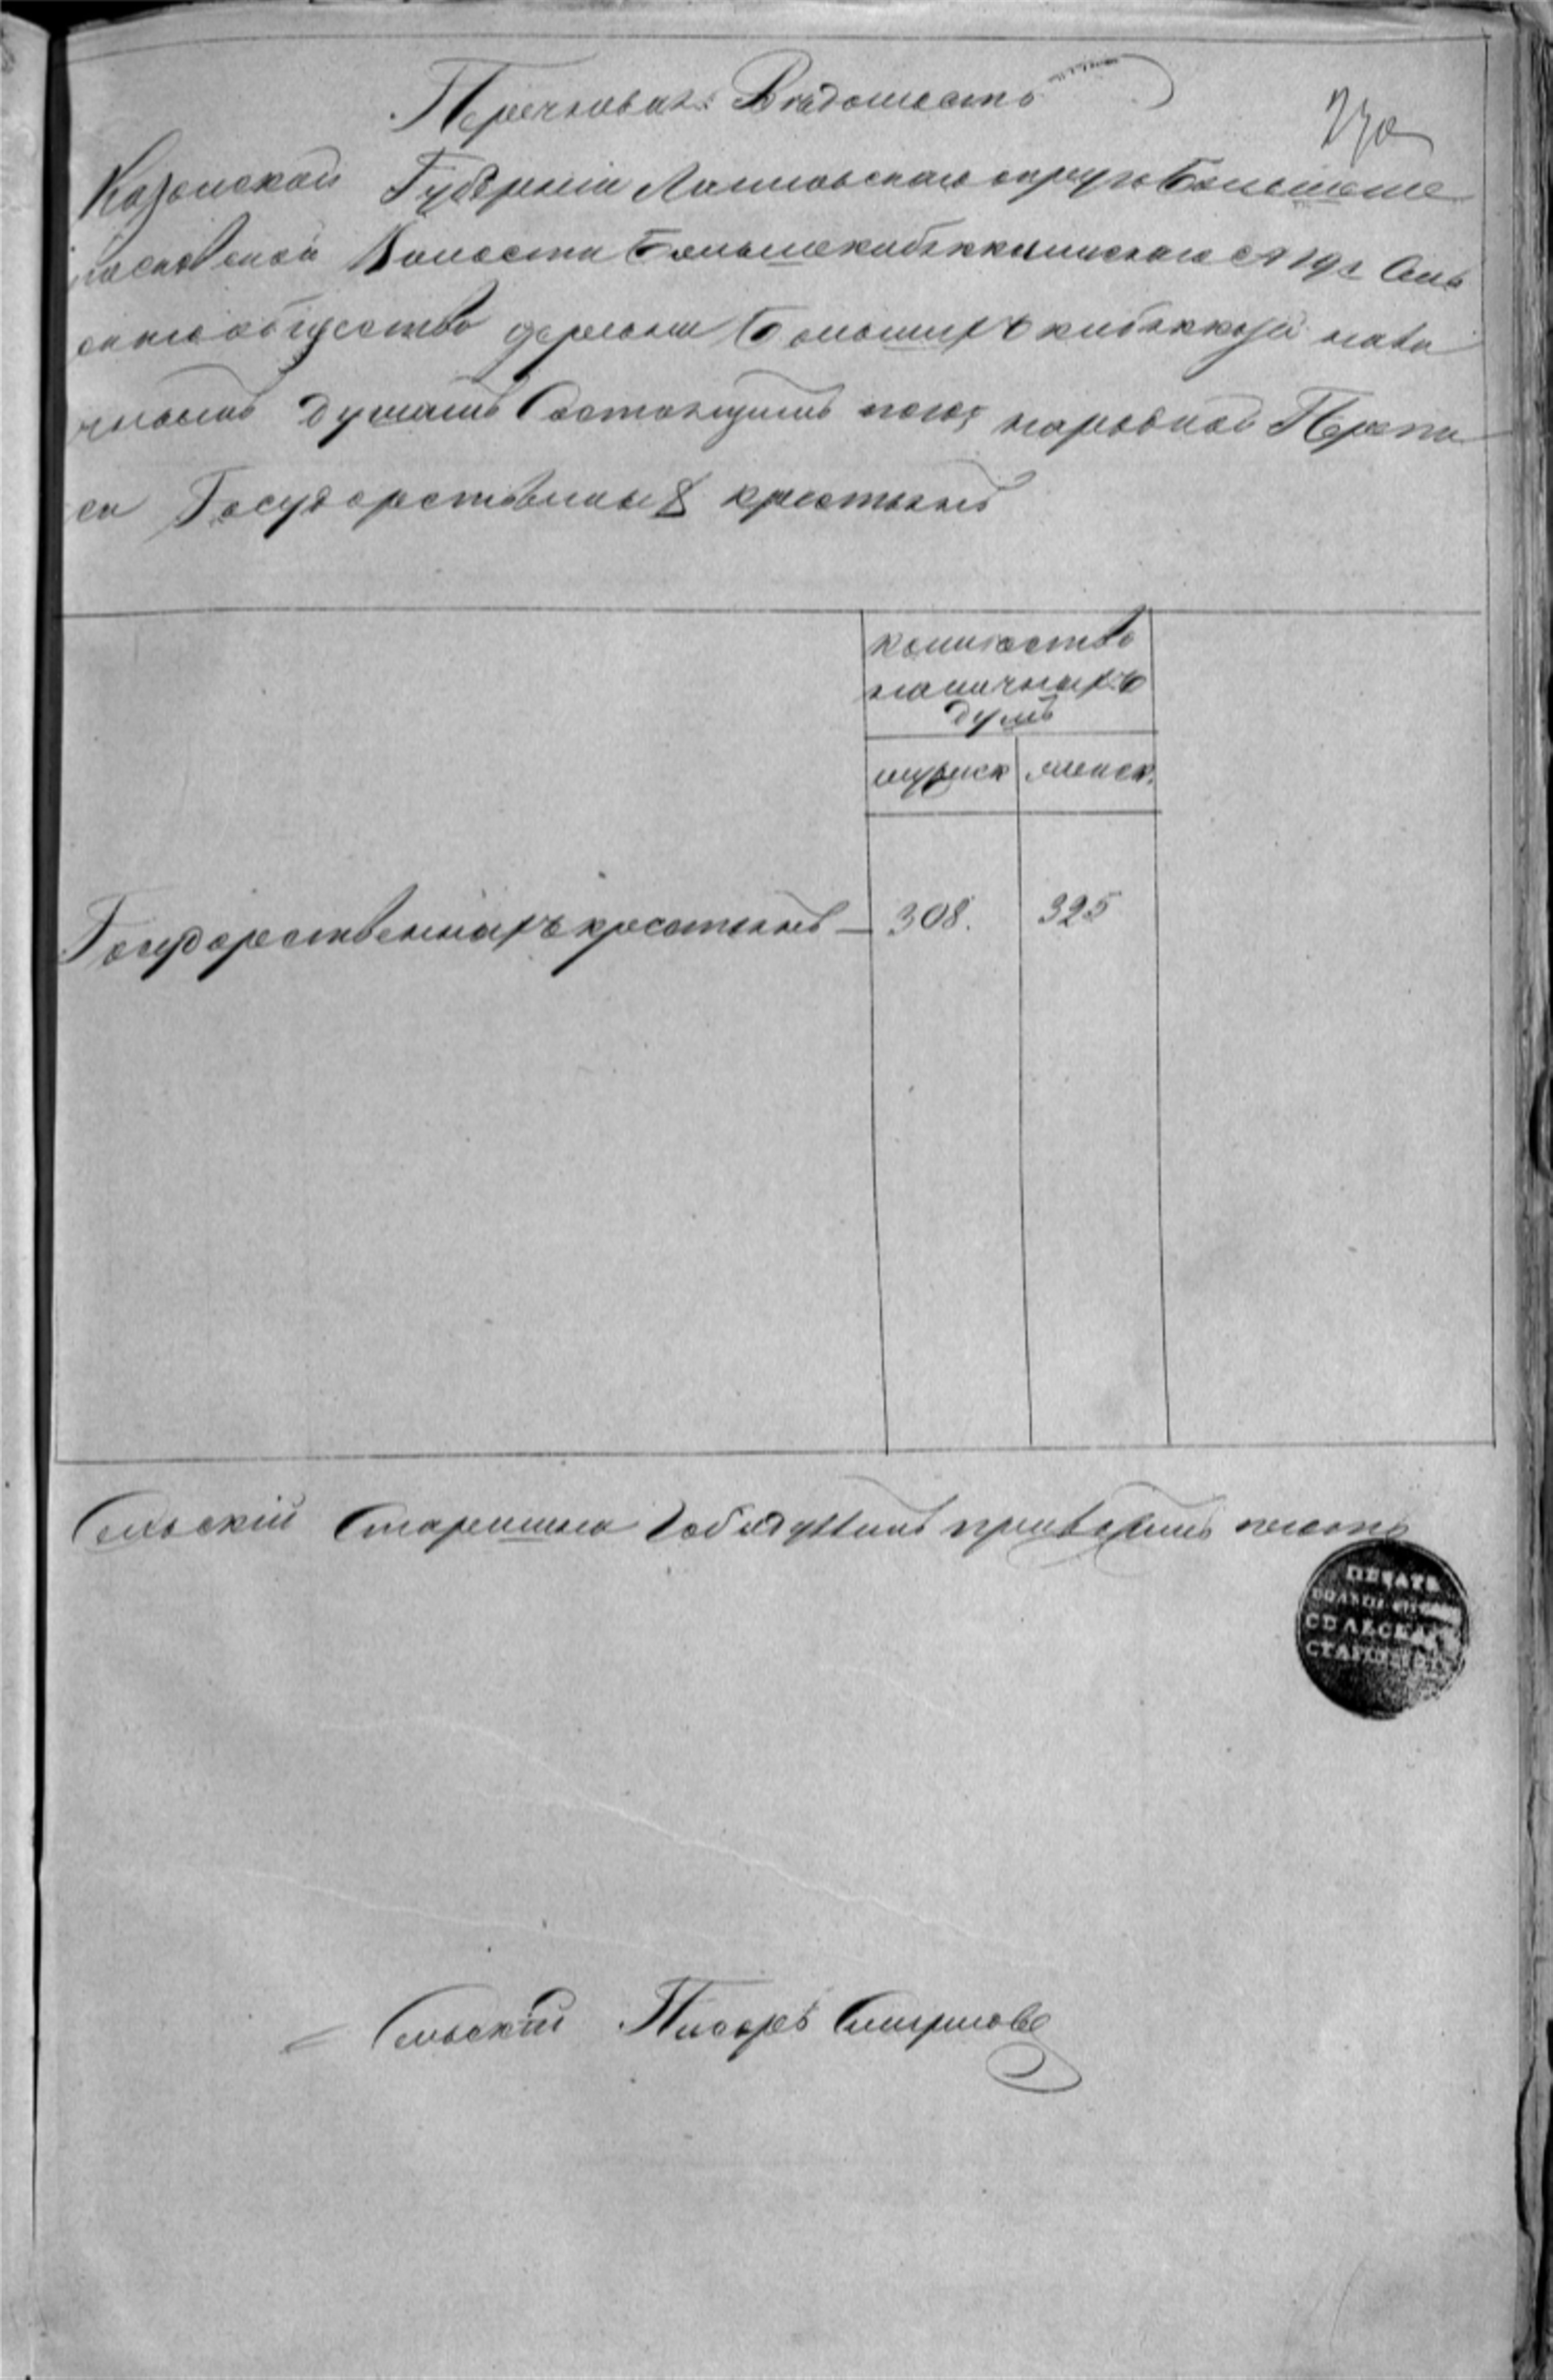 Перечневая Ведомость
Казанской Губерніи Лаишевскаго округа Большеме
Волости Большекибяккозинскаго № 19го Сель
скаго общества деревни Большихъ кибяккози нали
чнымъ душамъ Состоящимъ по 10й народной Перепи
си Государственныхъ крестьянъ
количество
наличныхъ
душъ
мужеск женск.
Государственныхъ крестьянъ — 308. 325
Сельскій Старшина Габидуллинъ приложилъ печать
ПЕЧАТЬ
СЕЛЬСКАГО
СТАРШИНЫ
Сельскій Писарь Смирновъ